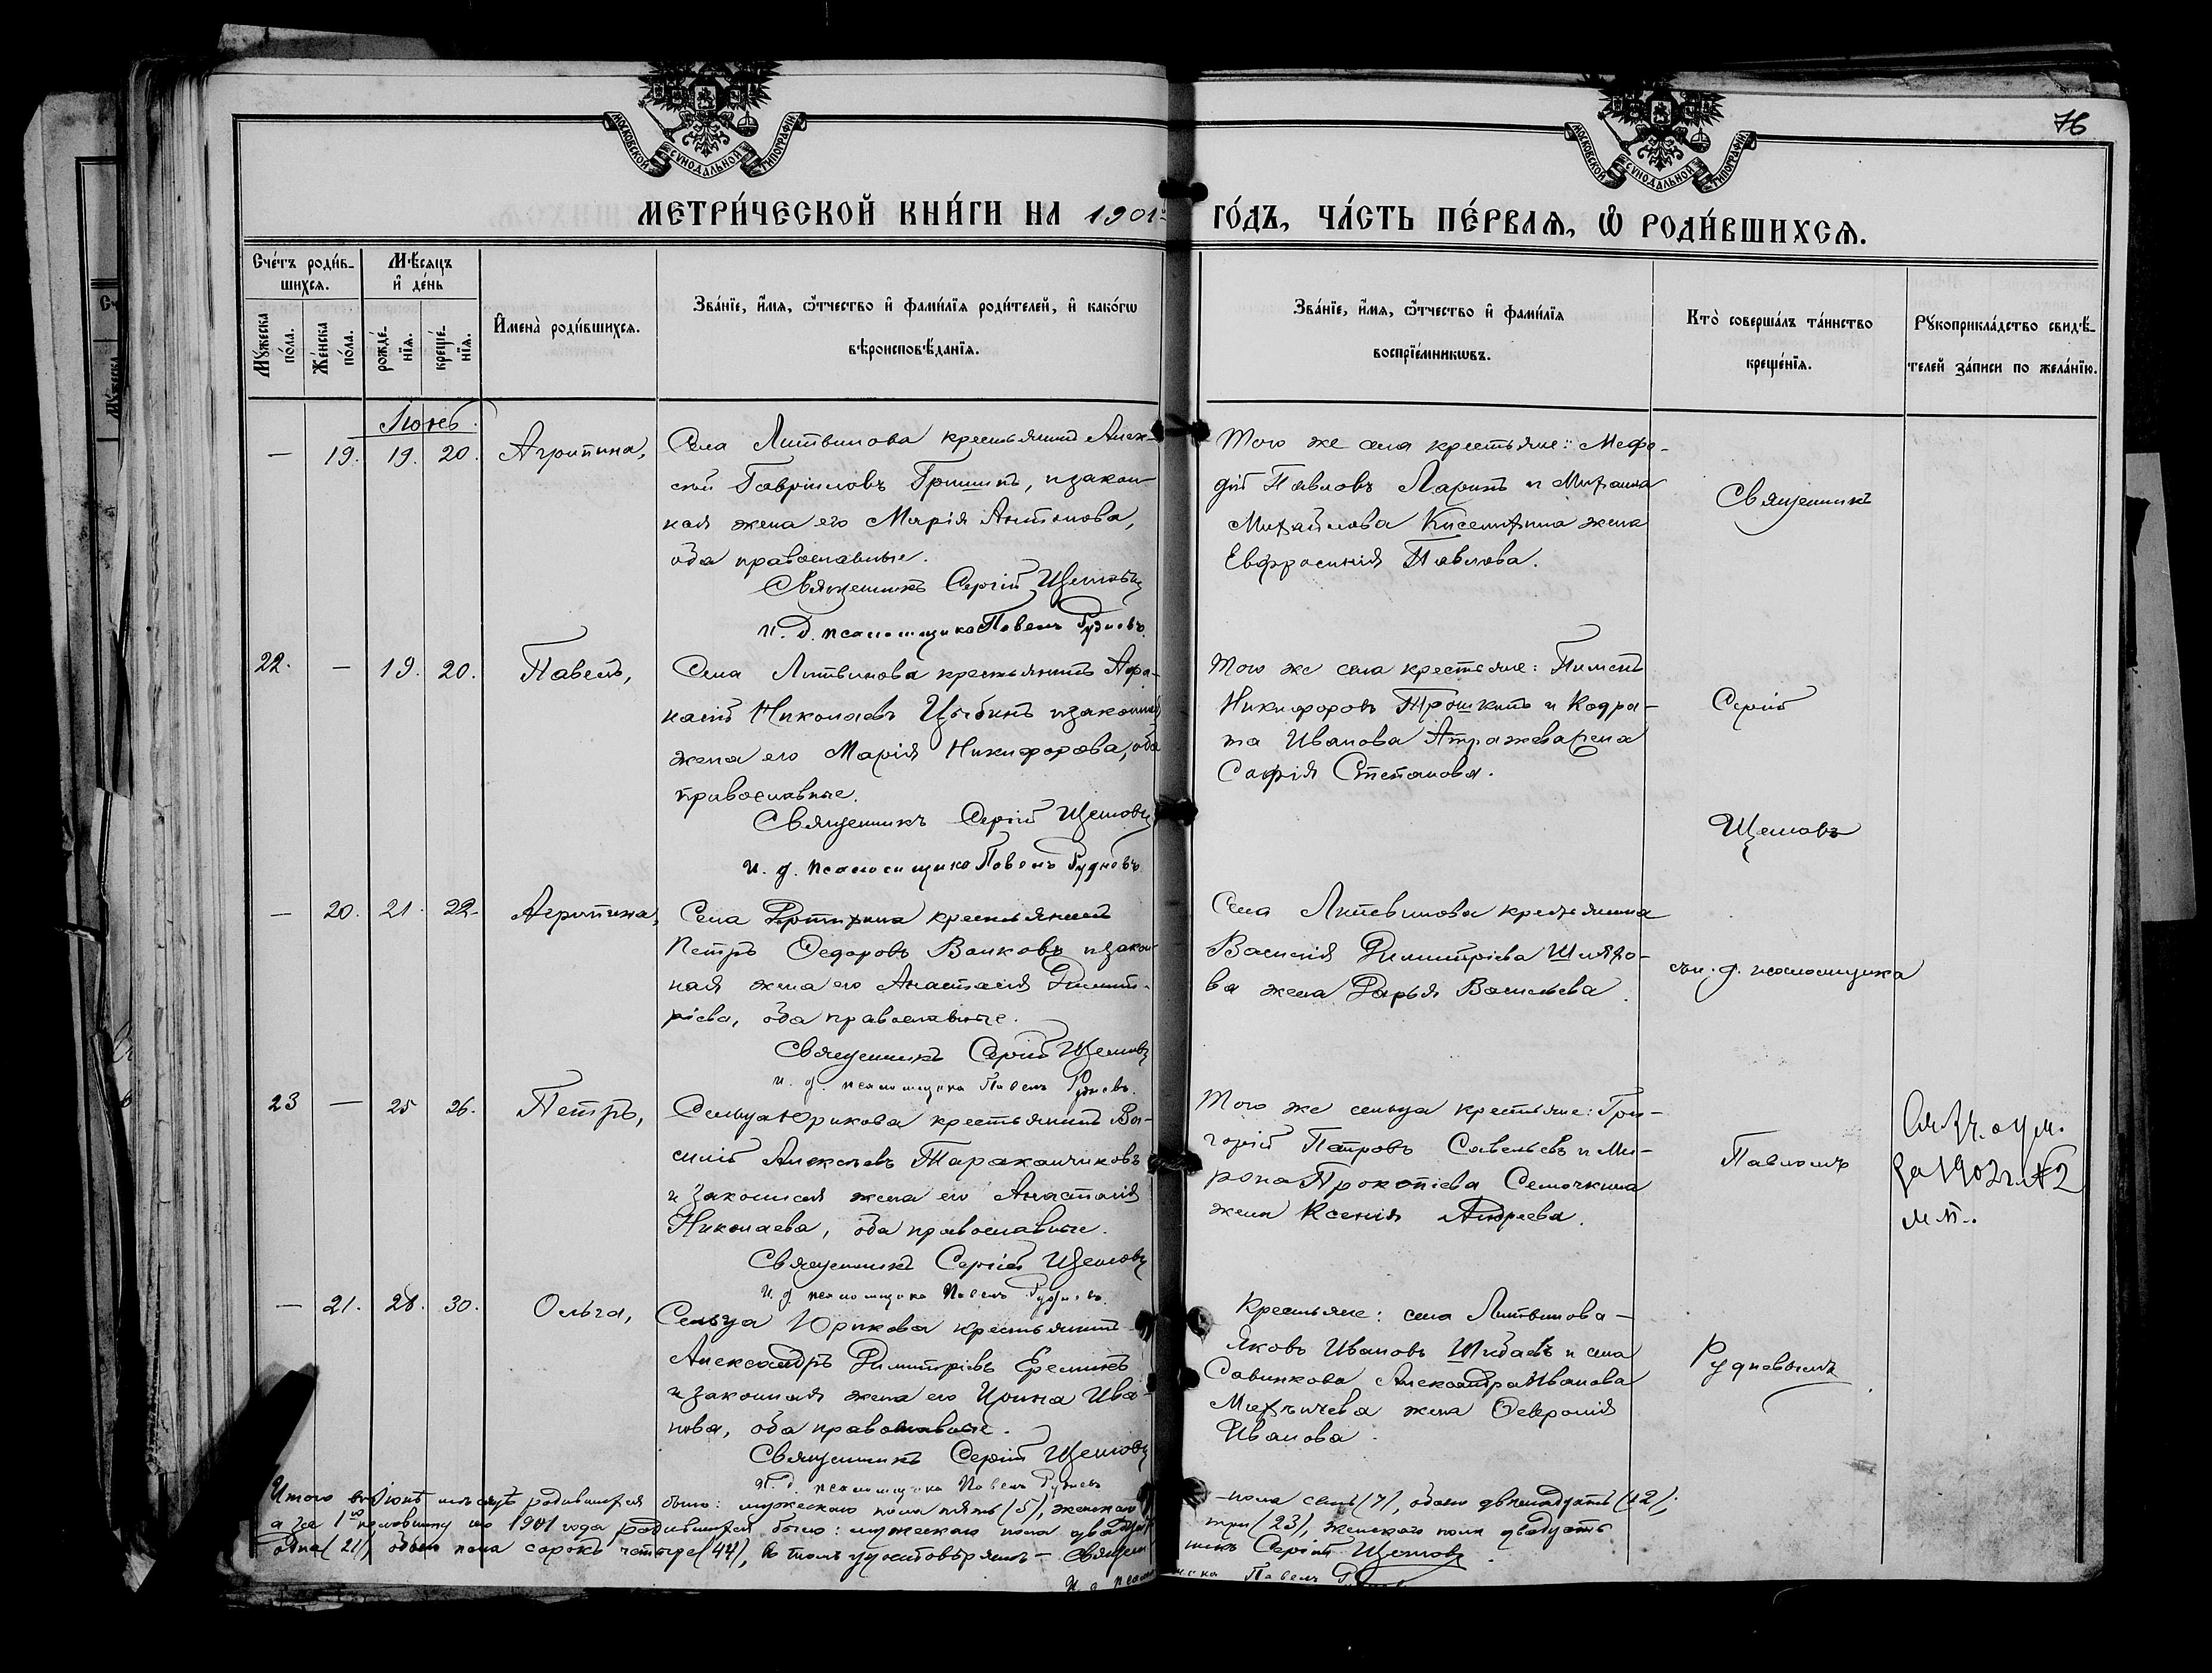 76
МОСКОВСКОЙ СУНОДАЛЬНОЙ ТИПОГРАФІИ
МОСКОВСКОЙ СУНОДАЛЬНОЙ ТИПОГРАФІИ
МЕТРИ́ЧЕСКОЙ КНИ́ГИ НА 1901 г. ГО́ДЪ, ЧА́СТЬ ПЕ́РВАѦ, Ѡ РОДИ́ВШИХСѦ.
Сче́тъ роди́в-
шихсѧ.
Мꙋ́жеска
по́ла.
Же́нска
по́ла.
Мѣ́сѧцъ
и҆ де́нь
рожде́-
нїѧ.
креще́-
нїѧ.
И҆мена̀ роди́вшихсѧ.
Зва́нїе, и҆́мѧ, ѻ҆́тчество и҆ фами́лїѧ роди́телей, и҆ како́гѡ
вѣроисповѣ́данїѧ.
Зва́нїе, и҆́мѧ, ѻ҆́тчество и҆ фами́лїѧ
воспрїе́мникѡвъ.
Кто̀ соверша́лъ та́инство
креще́нїѧ.
Рꙋкоприкла́дство свидѣ́-
телей за́писи по жела́нїю.
Іюнь.
— 19. 19. 20. Агрипина,
Села Литвинова крестьянинъ Алек-
сѣй Гавріиловъ Гришинъ, и закон-
ная жена его Марія Антонова,
оба православные.
Священникъ Сергій Щегловъ
И. д. псаломщика Павелъ Рудневъ.
Того же села крестьяне: Мефо-
дій Павловъ Ларинъ и Михаила
Михайлова жена
Евфросинія Павлова.
Священникъ
22. — 19. 20. Павелъ,
Села Литвинова крестьянинъ Афа-
насій Николаевъ Цыбинъ и законная
жена его Марія Никифорова, оба
православные.
Священникъ Сергій Щегловъ
и. д. псаломщика Павелъ Рудневъ
Того же села крестьяне: Пименъ
Никифоровъ Трошкинъ и Кодра-
та Иванова жена
Софія Степанова.
Сергій
Щегловъ
— 20. 21. 22. Агрипина,
Села крестьянинъ
Петръ Ѳедоровъ Волковъ и закон-
ная жена его Анастасія Димит-
ріева, оба православные.
Священникъ Сергій Щегловъ
и. д. псаломщика Павелъ Рудневъ.
Села Литвинова крестьянина
Василія Димитріева Шляхо-
ва жена Дарья Васильева.
съ и. д. псаломщика
23 — 25 26. Петръ,
Сельца Юрикова крестьянинъ Ва-
силій Алексѣевъ Тараканчиковъ
и законная жена его Анастасія
Николаева, оба православные.
Священникъ Сергій Щегловъ
И. д. псаломщика Павелъ Рудневъ.
Того же сельца крестьяне: Гри-
горій Петровъ Савельевъ и Ми-
рона Прокопіева Семочкина
жена Ксенія Андреева.
Павломъ
См. 3 ч. о ум.
за 1902 г. № 2
м. п.
— 21. 28. 30. Ольга,
Сельца Юрикова крестьянинъ
Александръ Димитріевъ Ереминъ
и законная жена его Ирина Ива-
нова, оба православные.
Священникъ Сергій Щегловъ
И. д. псаломщика Павелъ Рудневъ
Крестьяне: села Литвинова —
Яковъ Ивановъ Шибаевъ и села
Савинкова Александра Иванова
жена Ѳевронія
Иванова.
Рудневымъ
Итого въ Іюнѣ мѣсяцѣ родившихся было: мужескаго пола пять (5), женскаго — пола семь (7), обоего двенадцать (12);
а за 1ю половину 1901 года родившихся было: мужескаго пола двадцать три (23), женскаго пола двадцать
одна (21), обоего пола сорокъ четыре (44), въ томъ удостовѣряемъ — Священникъ Сергій Щегловъ
И. д. псаломщика Павелъ